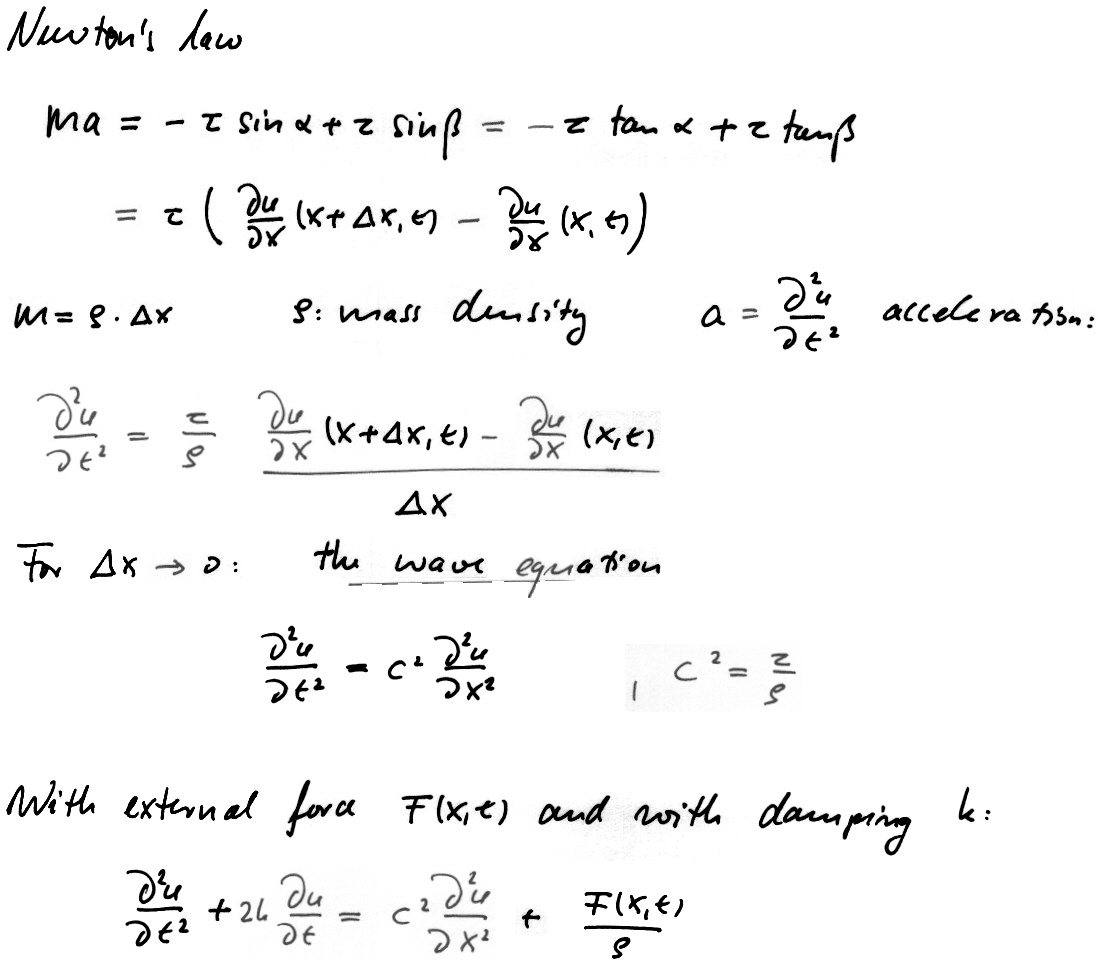 Newton's law
ma = - τ sin α + τ sin β = - τ tan α + τ tan β
= τ ( ∂u/∂x (x+Δx, t) - ∂u/∂x (x, t) )
m = ρ · Δx ρ: mass density a = ∂²u/∂t² acceleration:
∂²u/∂t² = τ/ρ (∂u/∂x (x+Δx, t) - ∂u/∂x (x, t))/Δx
For Δx → 0: the wave equation
∂²u/∂t² = c² ∂²u/∂x² , c² = τ/ρ
With external force F(x,t) and with damping k:
∂²u/∂t² + 2k ∂u/∂t = c² ∂²u/∂x² + F(x,t)/ρ